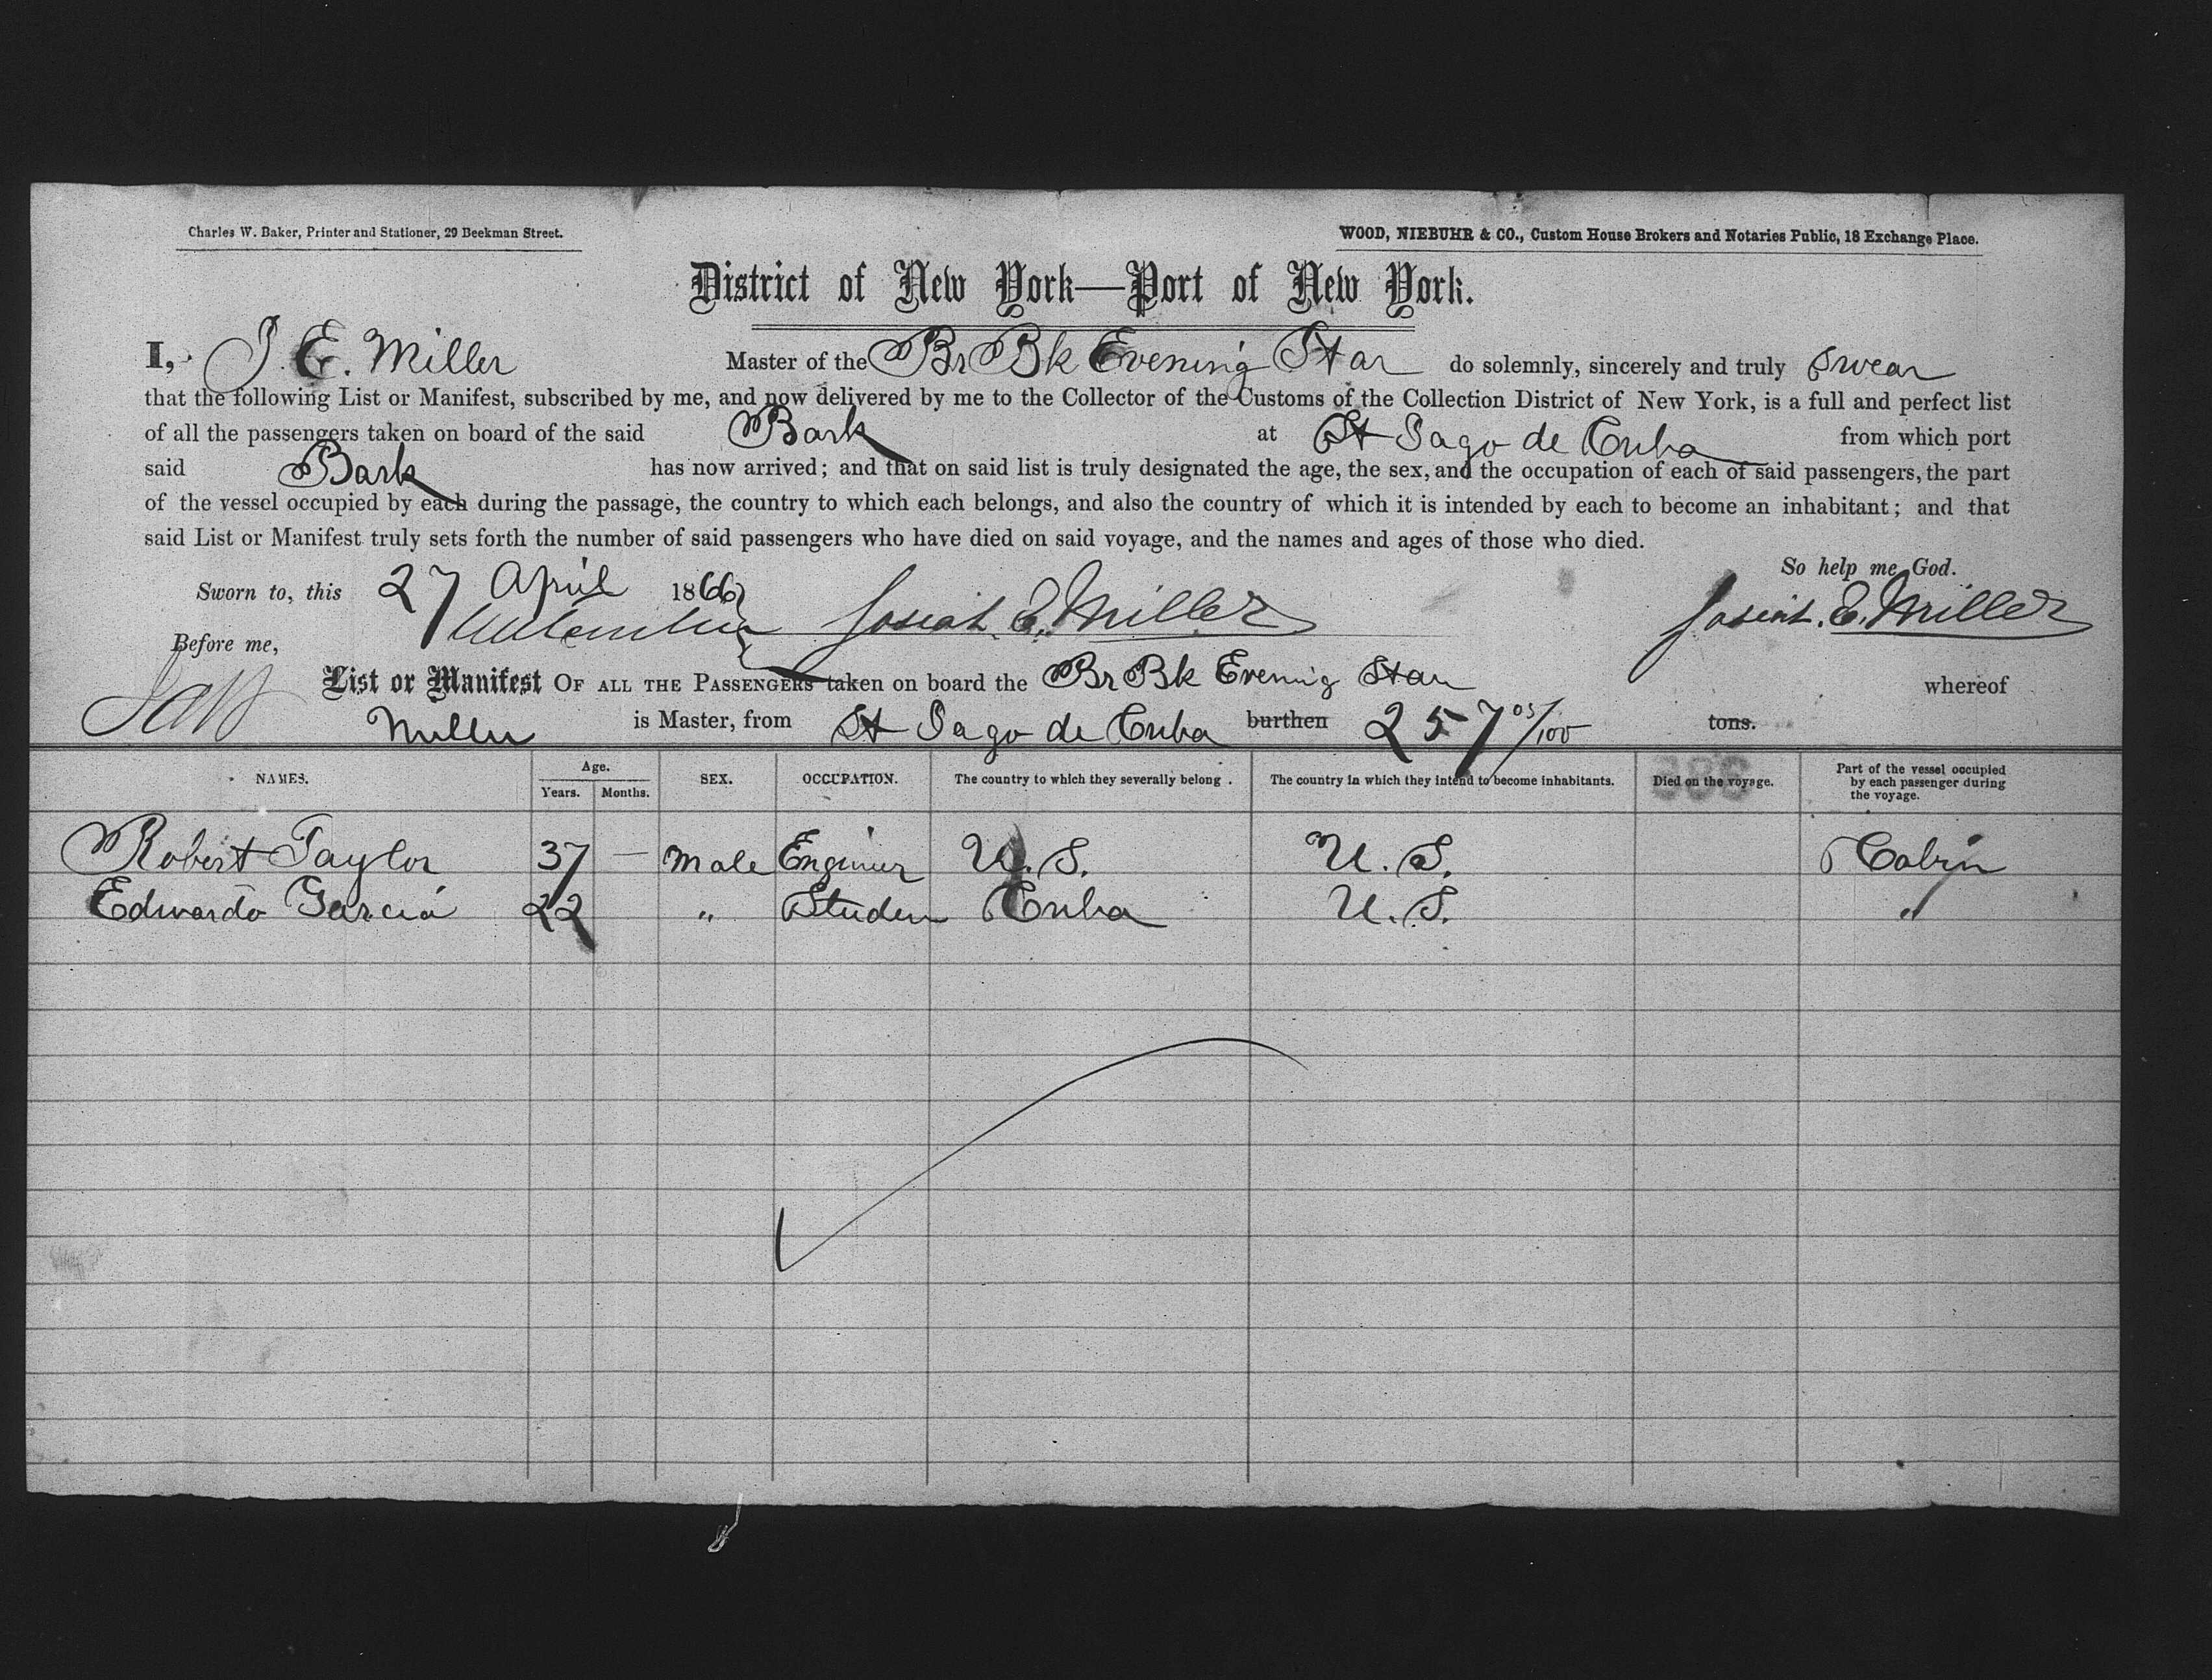 Charles W. Baker, Printer and Stationer, 29 Beekman Street.
WOOD, NIEBUHR & CO., Custom House Brokers and Notaries Public, 18 Exchange Place.
District of New York—Port of New York.
I, J. E. Miller Master of the Br Bk Evening Star do solemnly, sincerely and truly swear
that the following List or Manifest, subscribed by me, and now delivered by me to the Collector of the Customs of the Collection District of New York, is a full and perfect list
of all the passengers taken on board of the said Bark at St Jago de Cuba from which port
said Bark has now arrived; and that on said list is truly designated the age, the sex, and the occupation of each of said passengers, the part
of the vessel occupied by each during the passage, the country to which each belongs, and also the country of which it is intended by each to become an inhabitant; and that
said List or Manifest truly sets forth the number of said passengers who have died on said voyage, and the names and ages of those who died.
So help me God.
Sworn to, this 27 April 1866
Josiah. E. Miller Josiah. E. Miller
Before me,
List or Manifest OF ALL THE PASSENGERS taken on board the Br Bk Evening Star whereof
Miller is Master, from St Jago de Cuba burthen 257 03/100 tons.
NAMES. Age. Years. Months. SEX. OCCUPATION. The country to which they severally belong. The country in which they intend to become inhabitants. Died on the voyage. Part of the vessel occupied by each passenger during the voyage.
Robert Taylor 37 — Male Engineer U. S. U. S. Cabin
Edwardo Garcia 22 " Studen Cuba U. S. "